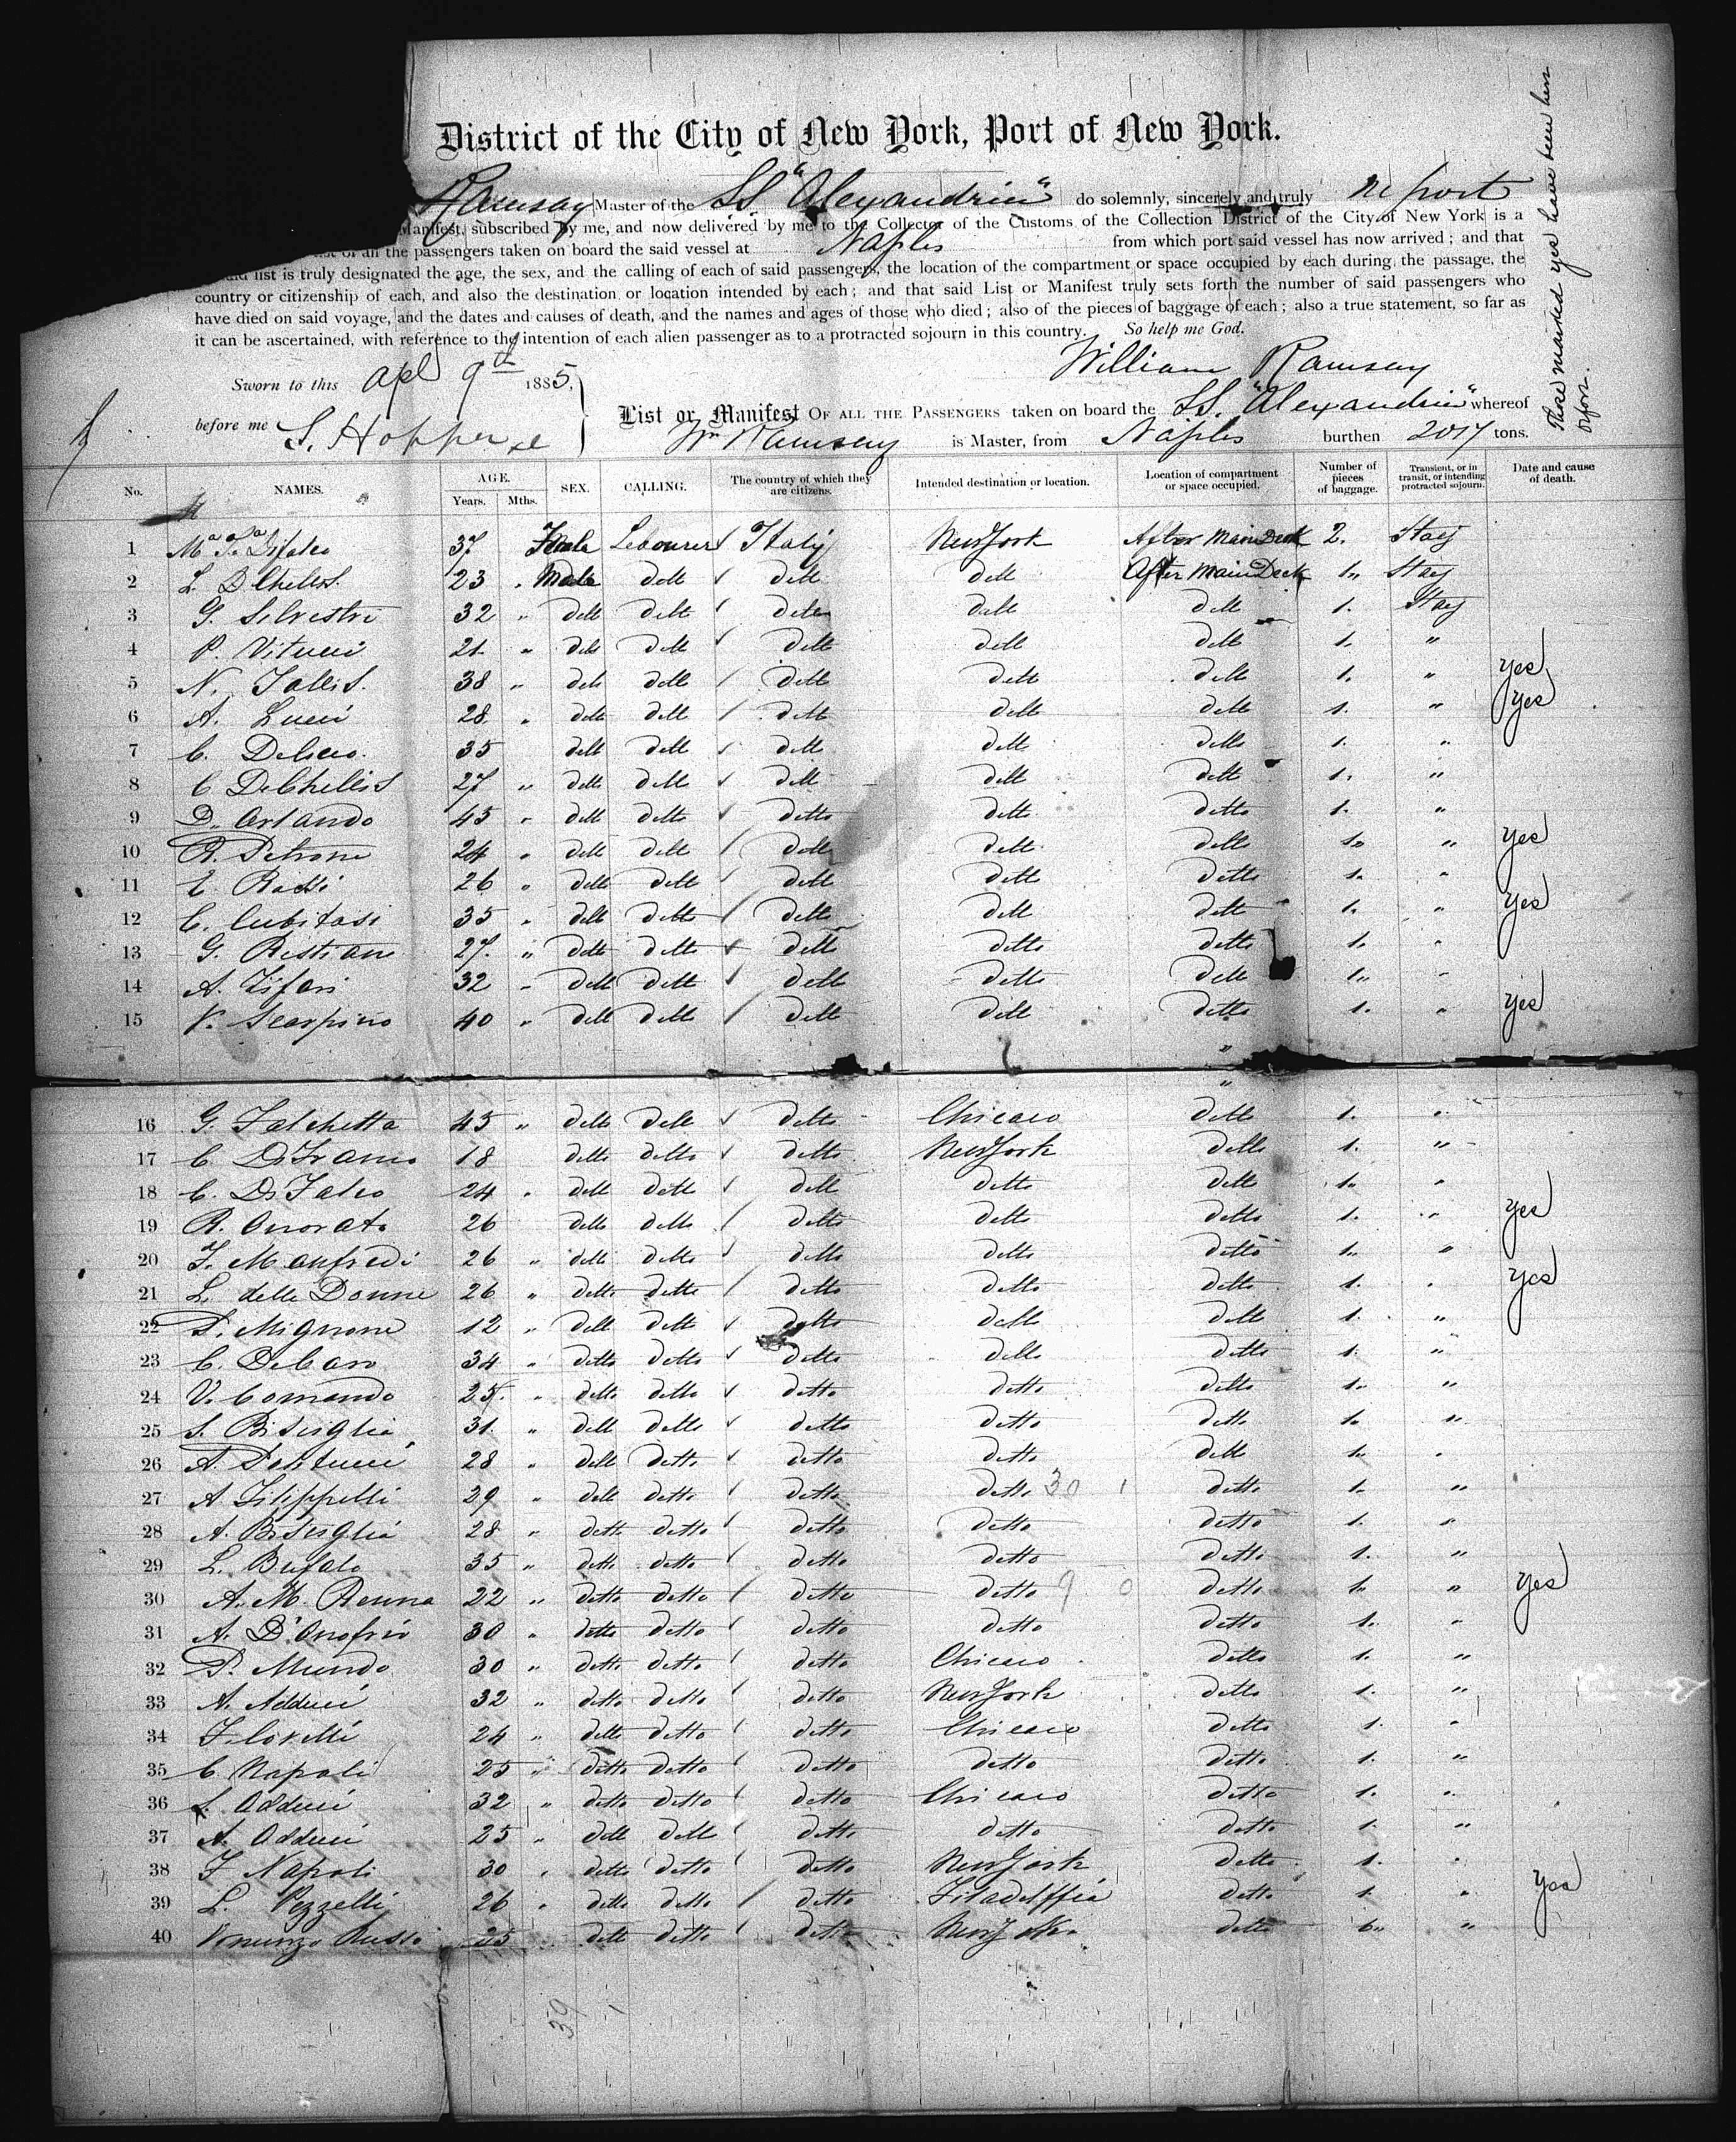 District of the City of New York, Port of New York.
Ramsay Master of the SS "Alexandria" do solemnly, sincerely and truly report
Manifest, subscribed by me, and now delivered by me to the Collector of the Customs of the Collection District of the City of New York is a
list of all the passengers taken on board the said vessel at Naples from which port said vessel has now arrived; and that
said list is truly designated the age, the sex, and the calling of each of said passengers, the location of the compartment or space occupied by each during the passage, the
country or citizenship of each, and also the destination or location intended by each; and that said List or Manifest truly sets forth the number of said passengers who
have died on said voyage, and the dates and causes of death, and the names and ages of those who died; also of the pieces of baggage of each; also a true statement, so far as
it can be ascertained, with reference to the intention of each alien passenger as to a protracted sojourn in this country. So help me God.
William Ramsay
Sworn to this Apl 9th 1885,
before me S. Hopper
List or Manifest OF ALL THE PASSENGERS taken on board the SS. "Alexandria" whereof
Wm Ramsay is Master, from Naples burthen 2017 tons.
Those marked yes have been here before.
No. NAMES. AGE. Years. Mths. SEX. CALLING. The country of which they are citizens. Intended destination or location. Location of compartment or space occupied. Number of pieces of baggage. Transient, or in transit, or intending protracted sojourn. Date and cause of death.
1 37 Labourer Italy New York After Main Deck 2. Stay
2 23 " Male dett dett dett After Main Deck 1" Stay
3 G. Silvestri 32 " dett dett dett dett dett 1. Stay
4 P. Vitucci 21 " dett dett dett dett dett 1. "
5 N. 38 " dett dett dett dett dett 1. " yes
6 A. Lucci 28 " dett dett dett dett dett 1. " yes
7 C. 35 dett dett dett dett dett 1. "
8 C DeChellis 27 " dett dett dett dett dett 1. "
9 D. Orlando 45 " dett detto detto detto detto 1. "
10 R. Petrone 24 " dett dett dett dett detto 1" " yes
11 26 " dett dett dett dett detto 1. "
12 C. Cubitosi 35 " dett detto detto dett dett 1. " yes
13 G. Restiano 27. " detto detto dett detto detto 1. "
14 A. Tifari 32 " dett dett dett detto dett 1" "
15 V. Scarpino 40 " dett dett dett dett detto 1. " yes
16 G. Falchetta 45 " detto dett detto Chicaco detto 1. "
17 C. 18 detto detto detto New York detto 1. "
18 C. Di Falco 24 " dett dett dett detto dett 1" "
19 R. Onorato 26 detto detto detto detto detto 1. " yes
20 F. Manfredi 26 " detto detto detto detto detto 1" "
21 L. delle Donne 26 " detto detto detto detto detto 1. " yes
22 P. Mignone 12 " dett dett detto dett dett 1. "
23 C. DeCaro 34 " detto detto detto detto detto 1. "
24 V. Comando 25. " detto detto detto detto detto 1" "
25 S. Bisiglia 31. " dett detto detto detto detto 1" "
26 A. 28 " dett detto detto detto dett 1" "
27 A Filippelli 29 " dett detto detto detto 30 1 detto 1. "
28 A. Bisiglia 28 " detto detto detto detto detto 1. "
29 L. Bufalo 35 " detto detto detto detto detto 1. "
30 A. M. Renna 22 " detto detto detto detto 9 0 detto 1. " yes
31 A. D'Onofrio 30 " detto detto detto detto detto 1. "
32 P. Mundo 30 " detto detto detto Chicaco detto 1. "
33 A. Adduci 32 " detto detto detto New York detto 1. "
34 F. Covelli 24 " detto detto detto Chicaco detto 1. "
35 C. Napoli 25 " detto detto detto detto detto 1. "
36 L. Adduci 32 " detto detto detto Chicaco detto 1. "
37 A. Adduci 25 " dett dett detto detto detto 1. "
38 F Napoli 30 " detto detto detto New York detto 1. "
39 L. Pezzelli 26 " detto detto detto Filadelffia detto 1. " yes
40 Venunzo Russo 25 dett detto detto New York detto "
39